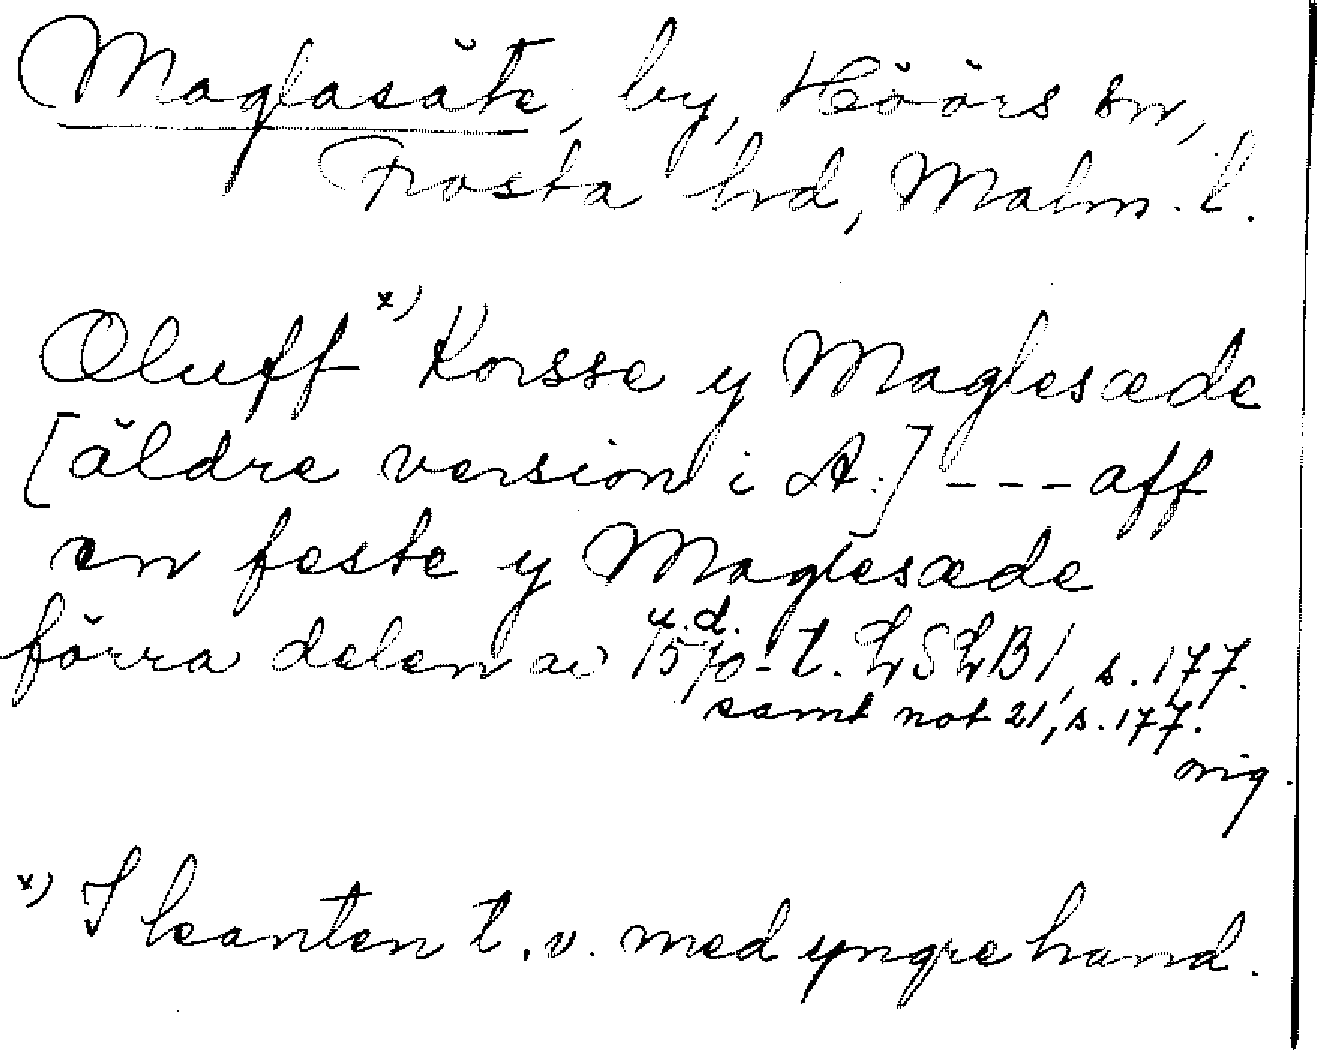 Maglasäte, by, Höörs sn,
Frosta hrd, Malm. l.
Oluff x) Korsse y Maglesæde
[äldre version i A:] --- aff
en feste y Maglesæde
u.d.
förra delen av 1570-t. LSLB 1, s. 177.
samt not 21, s. 177.
orig.
x) I kanten t. v. med yngre hand.